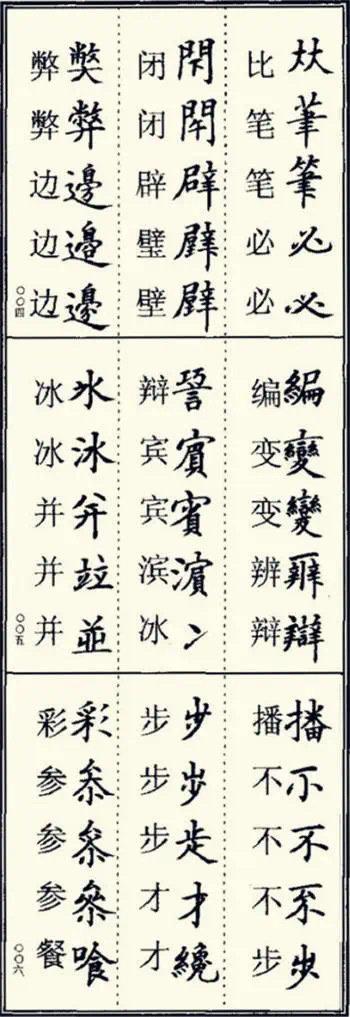 夶筆筆必必
比笔笔必必
閇閉辟璧壁
闭闭辟璧壁
獘弊邊邉邊
弊弊边边边
〇〇四
編變變辧辯
编变变辨辩
賔賓濵冫
辩宾宾滨冰
氷冰并竝並
冰冰并并并
〇〇五
播不不不步
播不不不步
步步才纔
步步步才才
彩叅叅參喰
彩参参参餐
〇〇六